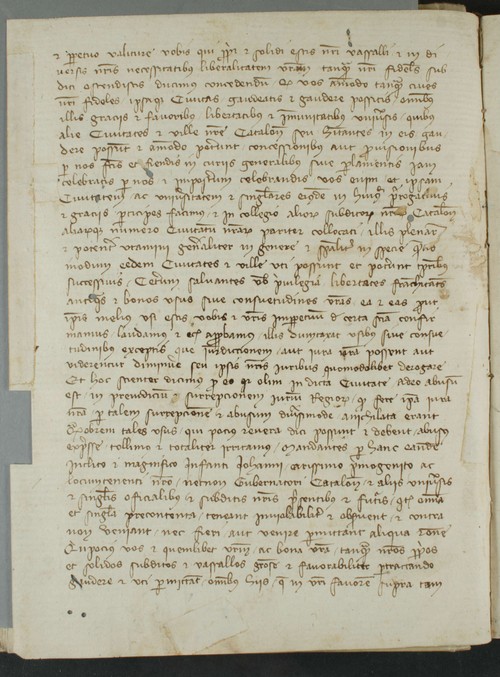 & perpetuo valiture vobis qui proprii & solidi estis nostri vassalli & in di
versis nostris necessitatibus liberalitatem vestram tanquam nostri fideles sub
diti ostendistis ducimus concedendum Quod vos amodo tanquam cives
nostri fideles ipsaque Civitas gaudeatis & gaudere possitis omnibus
illis graciis & favoribus libertatibus & immunitatibus universis quibus
alie Civitates & ville Catalonie seu habitantes in eis gau
dere possunt & amodo poterunt concessionibus aut provisionibus
per nos factis & fiendis in curiis generalibus sive parlamentis iam
celebratis per nos & imposterum celebrandis vos enim et ipsam
Civitatem ac universitatem & singulares eiusdem in huiusmodi prerogativis
& graciis participes facimus & in collegio aliorum subditorum Catalonie
aliarumque numero Civitatum nostrarum pariter collocati illis plenarie
& potenter utamini generaliter in genere & specialiter in specie Quem
modum eedem Civitates & ville uti possunt et poterunt temporibus
successivis Ceterum salvantes vobis privilegia libertates franchitates
antiquas & bonos usus sive consuetudines vestras ea & eas prout
ipsis melius usi estis vobis & vestris imperpetuum de certa sciencia confir
mamus laudamus & approbamus illis dumtaxat usibus sive consue
tudinibus exceptis que iurisdictionem aut iura possent aut
viderentur diminuere seu ipsis nostris iuribus quomodolibet derogare
Et hoc scienter dicimus pro eo quod olim in dicta Civitate adeo abusum
est in preiudicium & surrepcionem iurium Regiorum quod fere ipsa iura
nostra per talem surrepcionem & abusum diversimode anichilata erant
Quobrem tales usus qui pocius revera dici possunt & debent abusus
expresse tollimus & totaliter irritamus Mandantes per hanc eandem
Inclito & magnifico Infanti Iohanni carissimo primogenito ac
locumtenenti nostro necnon Gubernatori Catalonie & aliis universis
& singulis officialibus & subditis nostris presentibus & futuris quod omnia
et singula precontenta teneant inviolabiliter & observent & contra
non veniant nec fieri aut venire permittant aliqua racione
Quinpocius vos & quemlibet vestrum ac bona vestra tanquam nostros proprios
et solidos subditos & vassallos graciose & favorabiliter pertractando
gaudere & uti permittant omnibus hiis que in vestri favorem supra tam